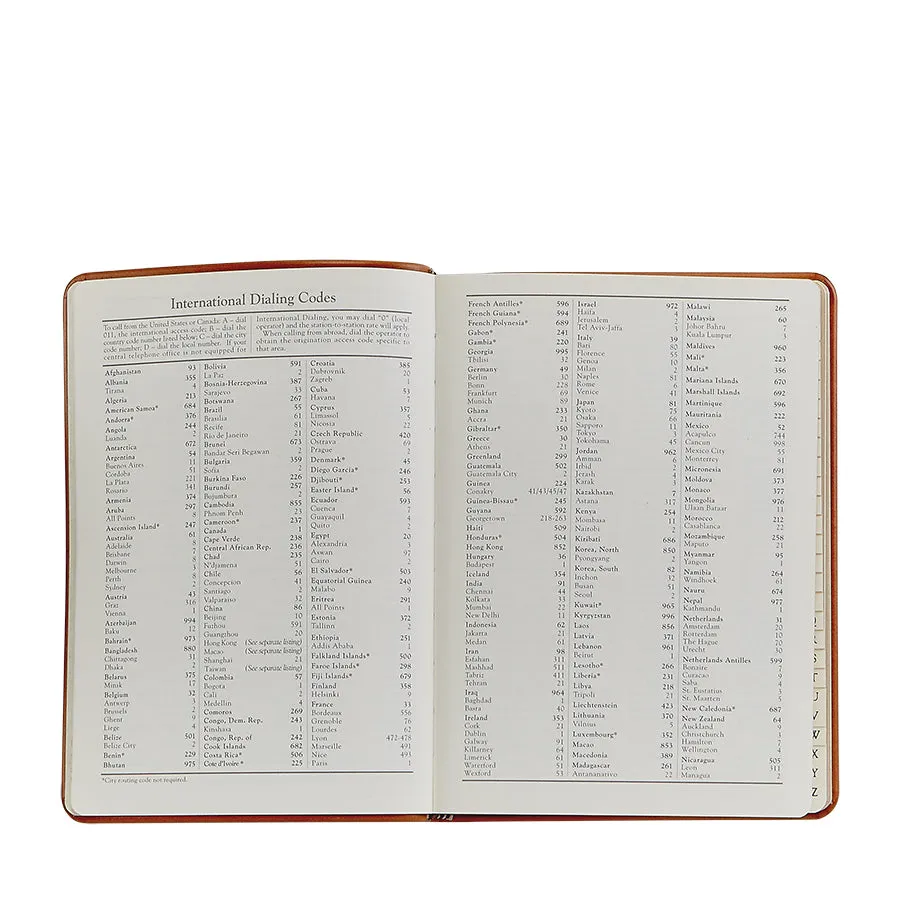 International Dialing Codes
To call from the United States or Canada: A – dial
21, the international access code; B – dial the
country code number listed below; C – dial the city
code number; D – dial the local number. If your
central telephone office is not equipped for
International Dialing, you may dial "0" (local
operator) and the station-to-station rate will apply.
When calling from abroad, dial the operator to
obtain the origination access code specific to
that area.
Afghanistan 93
Albania 355
Tirana 4
Algeria 213
American Samoa* 684
Andorra* 376
Angola 244
Luanda 2
Antarctica 672
Argentina 54
Buenos Aires 11
Cordoba 51
La Plata 221
Rosario 341
Armenia 374
Aruba 297
All Points 8
Ascension Island* 247
Australia 61
Adelaide 8
Brisbane 7
Darwin 8
Melbourne 3
Perth 8
Sydney 2
Austria 43
Graz 316
Vienna 1
Azerbaijan 994
Baku 12
Bahrain* 973
Bangladesh 880
Chittagong 31
Dhaka 2
Belarus 375
Minsk 17
Belgium 32
Antwerp 3
Brussels 2
Ghent 9
Liege 4
Belize 501
Belize City 2
Benin* 229
Bhutan 975
Bolivia 591
La Paz 2
Bosnia-Herzegovina 387
Sarajevo 33
Botswana 267
Brazil 55
Brasilia 61
Recife 81
Rio de Janeiro 21
Brunei 673
Bandar Seri Begawan 2
Bulgaria 359
Sofia 2
Burkina Faso 226
Burundi 257
Bujumbura 2
Cambodia 855
Phnom Penh 23
Cameroon* 237
Canada 1
Cape Verde 238
Central African Rep. 236
Chad 235
N'djamena 51
Chile 56
Concepcion 41
Santiago 2
Valparaiso 32
China 86
Beijing 10
Fuzhou 591
Guangzhou 20
Hong Kong (See separate listing)
Macao (See separate listing)
Shanghai 21
Taiwan (See separate listing)
Colombia 57
Bogota 1
Cali 2
Medellin 4
Comoros 269
Congo, Dem. Rep. 243
Kinshasa 1
Congo, Rep. of 242
Cook Islands 682
Costa Rica* 506
Cote d'Ivoire * 225
Croatia 385
Dubrovnik 20
Zagreb 1
Cuba 53
Havana 7
Cyprus 357
Limassol 5
Nicosia 22
Czech Republic 420
Ostrava 69
Prague 2
Denmark* 45
Diego Garcia* 246
Djibouti* 253
Easter Island* 56
Ecuador 593
Cuenca 7
Guayaquil 4
Quito 2
Egypt 20
Alexandria 3
Aswan 97
Cairo 2
El Salvador* 503
Equatorial Guinea 240
Malabo 9
Eritrea 291
All Points 1
Estonia 372
Tallinn 2
Ethiopia 251
Addis Ababa 1
Falkland Islands* 500
Faroe Islands* 298
Fiji Islands* 679
Finland 358
Helsinki 9
France 33
Bordeaux 556
Grenoble 76
Lourdes 62
Lyon 472-478
Marseille 491
Nice 493
Paris 1
*City routing code not required.
French Antilles* 596
French Guiana* 594
French Polynesia* 689
Gabon* 241
Gambia* 220
Georgia 995
Tbilisi 32
Germany 49
Berlin 30
Bonn 228
Frankfurt 69
Munich 89
Ghana 233
Accra 21
Gibraltar* 350
Greece 30
Athens 21
Greenland 299
Guatemala 502
Guatemala City 2
Guinea 224
Conakry 41/43/45/47
Guinea-Bissau* 245
Guyana 592
Georgetown 218-263
Haiti 509
Honduras* 504
Hong Kong 852
Hungary 36
Budapest 1
Iceland 354
India 91
Chennai 44
Kolkata 33
Mumbai 22
New Delhi 11
Indonesia 62
Jakarta 21
Medan 61
Iran 98
Esfahan 311
Mashhad 511
Tabriz 411
Tehran 21
Iraq 964
Baghdad 1
Basra 40
Ireland 353
Cork 21
Dublin 1
Galway 91
Killarney 64
Limerick 61
Waterford 51
Wexford 53
Israel 972
Haifa 4
Jerusalem 2
Tel Aviv-Jaffa 3
Italy 39
Bari 80
Florence 55
Genoa 10
Milan 2
Naples 81
Rome 6
Venice 41
Japan 81
Kyoto 75
Osaka 66
Sapporo 11
Tokyo 3
Yokohama 45
Jordan 962
Amman 6
Irbid 2
Jerash 4
Karak 3
Kazakhstan 7
Astana 317
Kenya 254
Mombasa 11
Nairobi 2
Kiribati 686
Korea, North 850
Pyongyang 2
Korea, South 82
Inchon 32
Busan 51
Seoul 2
Kuwait* 965
Kyrgyzstan 996
Laos 856
Latvia 371
Lebanon 961
Beirut 1
Lesotho* 266
Liberia* 231
Libya 218
Tripoli 21
Liechtenstein 423
Lithuania 370
Vilnius 5
Luxembourg* 352
Macao 853
Macedonia 389
Madagascar 261
Antananarivo 22
Malawi 265
Malaysia 60
Johor Bahru 7
Kuala Lumpur 3
Maldives 960
Mali* 223
Malta* 356
Mariana Islands 670
Marshall Islands 692
Martinique 596
Mauritania 222
Mexico 52
Acapulco 744
Cancun 998
Mexico City 55
Monterrey 81
Micronesia 691
Moldova 373
Monaco 377
Mongolia 976
Ulaan Bataar 11
Morocco 212
Casablanca 22
Mozambique 258
Maputo 21
Myanmar 95
Yangon 1
Namibia 264
Windhoek 61
Nauru 674
Nepal 977
Kathmandu 1
Netherlands 31
Amsterdam 20
Rotterdam 10
The Hague 70
Utrecht 30
Netherlands Antilles 599
Bonaire 7
Curacao 9
Saba 4
St. Eustatius 3
St. Maarten 5
New Caledonia* 687
New Zealand 64
Auckland 9
Christchurch 3
Hamilton 7
Wellington 4
Nicaragua 505
Leon 311
Managua 2
S
T
U
V
W
X
Y
Z